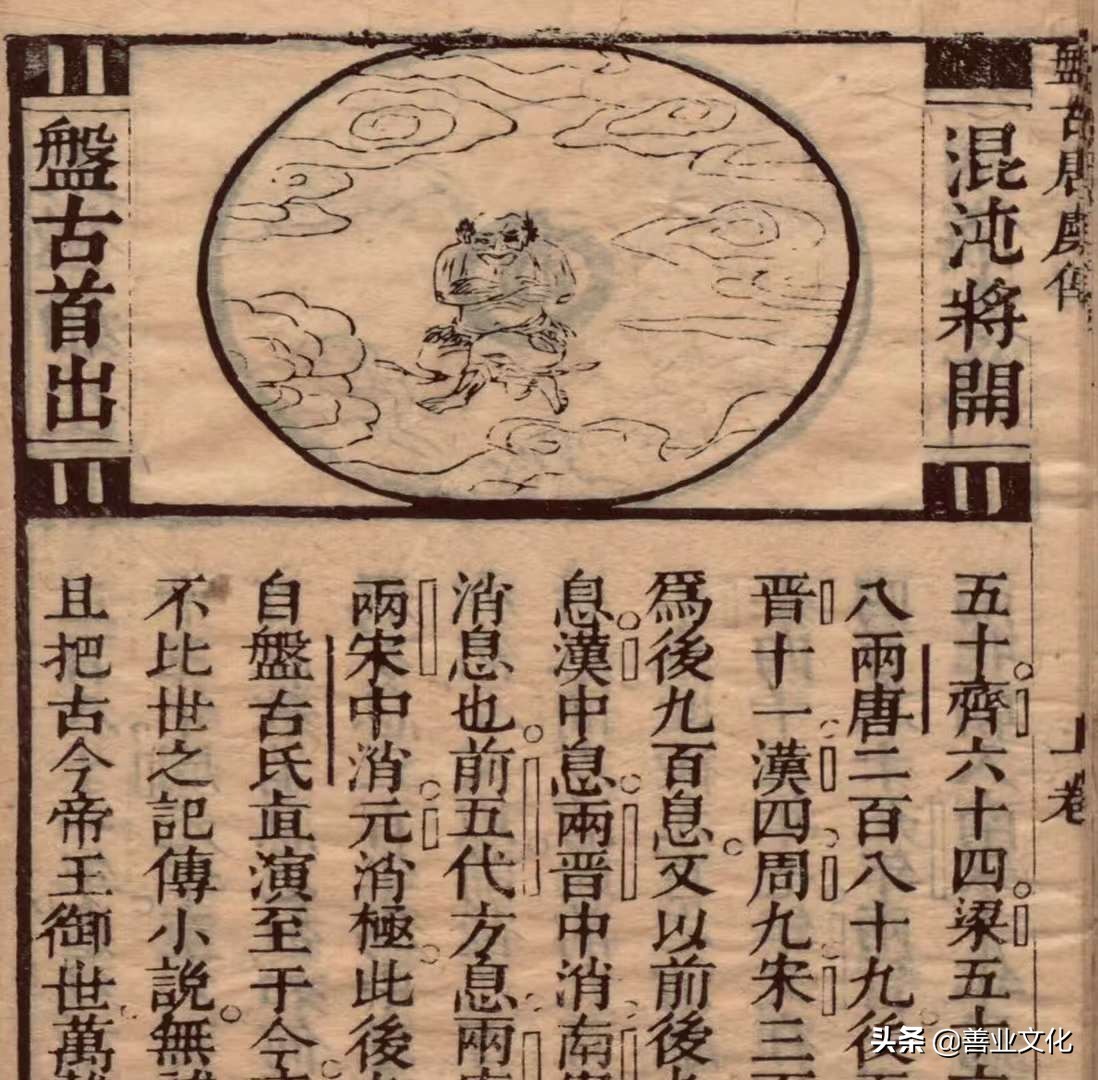 盤古唐虞傳
上卷
混沌將開
盤古首出
五十齊六十四梁五十
八兩唐二百八十九後五
晋十一漢四周九宋三百
爲後九百息又以前後九
息漢中息兩晋中消南
消息也前五代方息兩唐
兩宋中消元消極此後
自盤古氏直演至于今
不比世之記傳小說無
且把古今帝王御世萬
头条 @善业文化